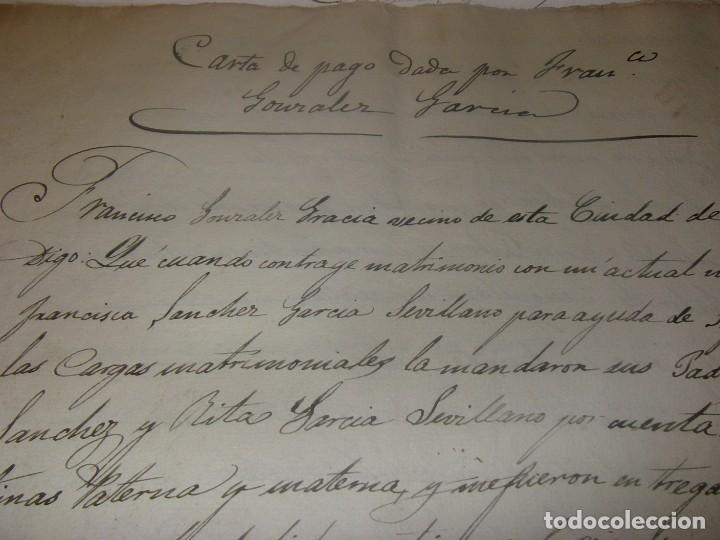 Carta de pago dada por Fran.co
Gonzalez Garcia
Francisco Gonzalez Gracia vecino de esta Ciudad de
Digo: Que cuando contrage matrimonio con mi actual
francisca Sanchez Garcia Sevillano para ayuda de
las Cargas matrimoniales la mandaron sus Pad
Sanchez y Rita Garcia Sevillano por cuenta
inas Paterna y materna, y me fueron entrega
todocoleccion
todocoleccion.net